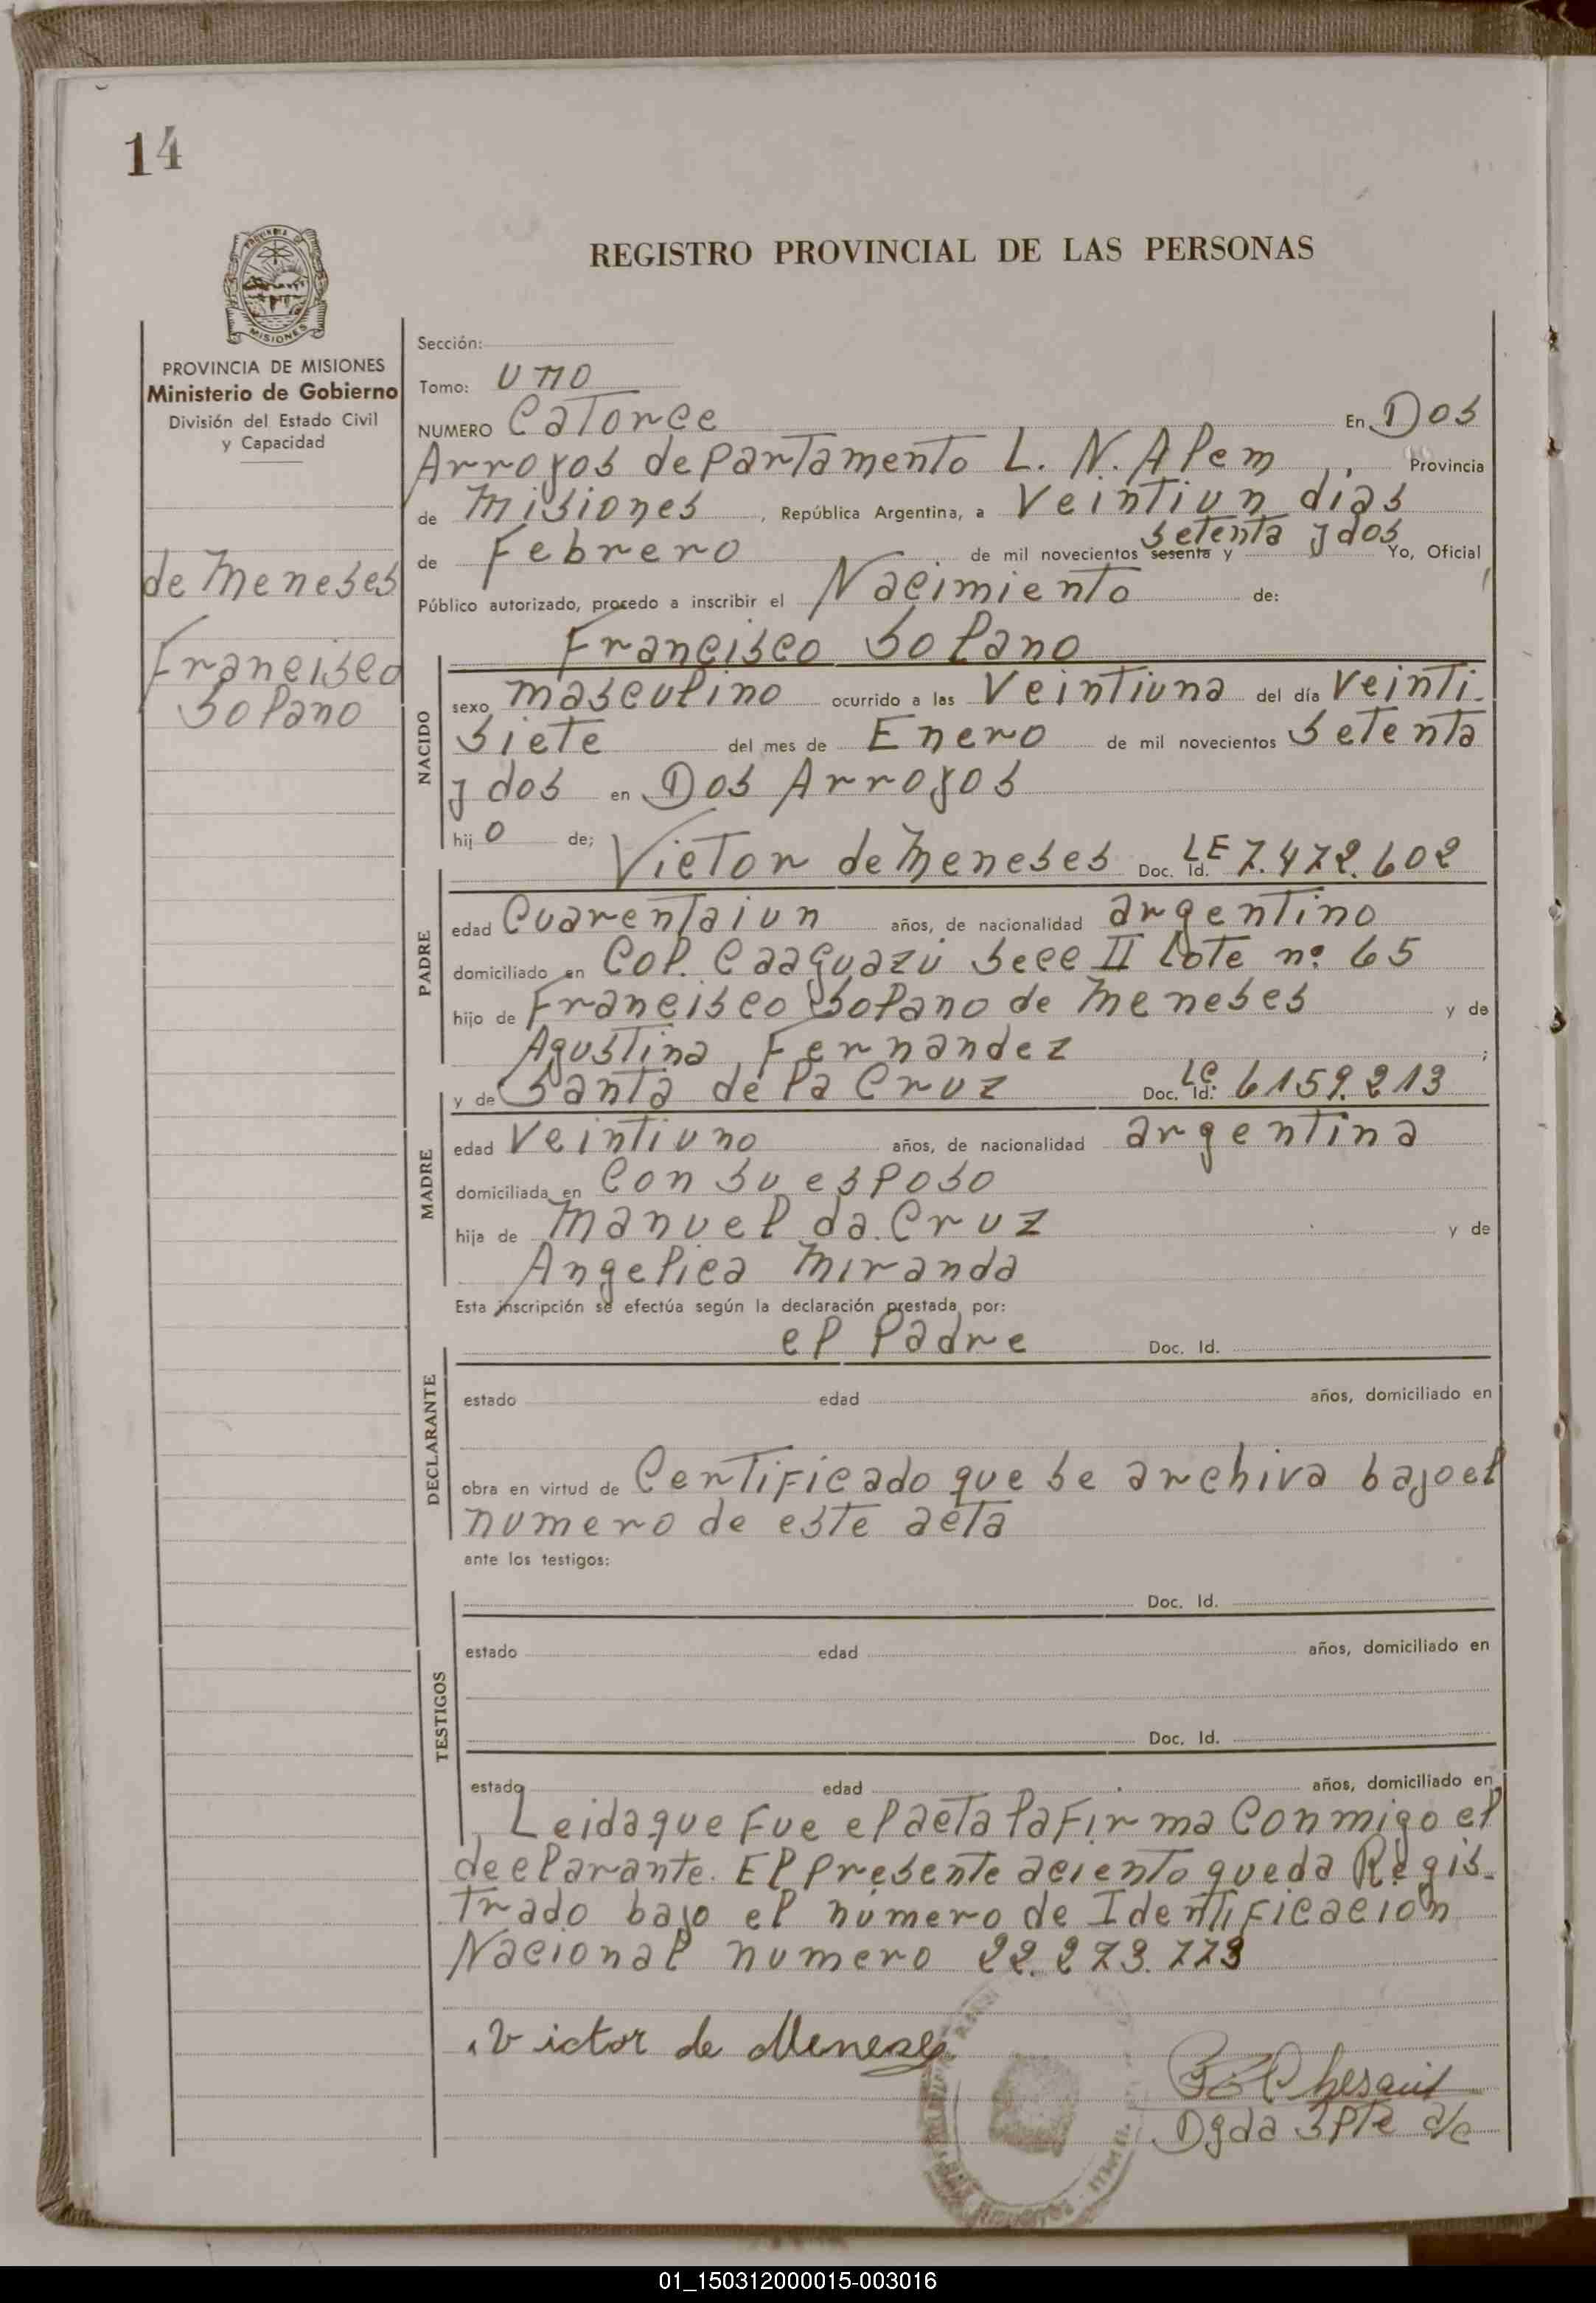 14
REGISTRO PROVINCIAL DE LAS PERSONAS
PROVINCIA DE MISIONES
Ministerio de Gobierno
División del Estado Civil
y Capacidad
de Meneses
Francisco
Solano
Sección:
Tomo: uno
NUMERO Catorce En Dos
Arroyos departamento L. N. Alem, Provincia
de Misiones, República Argentina, a Veintiun dias
de Febrero de mil novecientos sesenta y setenta y dos Yo, Oficial
Público autorizado, procedo a inscribir el Nacimiento de:
Francisco Solano
NACIDO
sexo masculino ocurrido a las Veintiuna del día Veinti-
siete del mes de Enero de mil novecientos setenta
y dos en Dos Arroyos
hijo de; Victor de Meneses Doc. Id. LE 7.472.602
PADRE
edad Cuarentaiun años, de nacionalidad argentino
domiciliado en Col. Caaguazú Secc II Lote nº 65
hijo de Francisco Solano de Meneses y de
Agustina Fernandez;
y de Santa de la Cruz Doc. Id. LC 6159.213
MADRE
edad Veintiuno años, de nacionalidad argentina
domiciliada en Con su esposo
hija de Manuel da Cruz y de
Angelica Miranda
Esta inscripción se efectúa según la declaración prestada por:
el Padre Doc. Id.
DECLARANTE
estado edad años, domiciliado en
obra en virtud de Certificado que se archiva bajo el
numero de este acta
ante los testigos:
Doc. Id.
TESTIGOS
estado edad años, domiciliado en
Doc. Id.
estado edad años, domiciliado en
Leida que fue el acta la firma Conmigo el
declarante. El presente aciento queda Regis-
trado bajo el número de Identificacion
Nacional numero 22.273.773
Victor de Meneses
Dgda Splte a/c
01_150312000015-003016